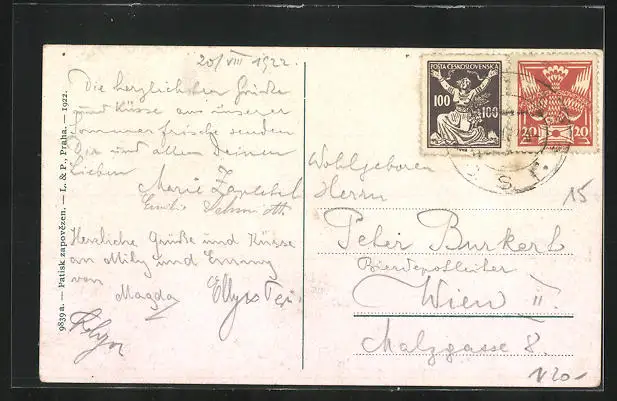 20/VIII 1922.
Die herzlichsten Grüße
und Küsse aus unserer
Sommerfrische senden
Dir und allen Deinen
Lieben
Marie
Herzliche Grüße und Küsse
an Mily und Emmy
von
Magda
9839a. — Patisk zapovězen. — L. & P., Praha. — 1922.
POSTA ČESKOSLOVENSKÁ
100 100
20 20
Wohlgeboren
Herrn
15
Peter Burkert
Bierdepotleiter
Wien II.
Malzgasse 8.
N20-